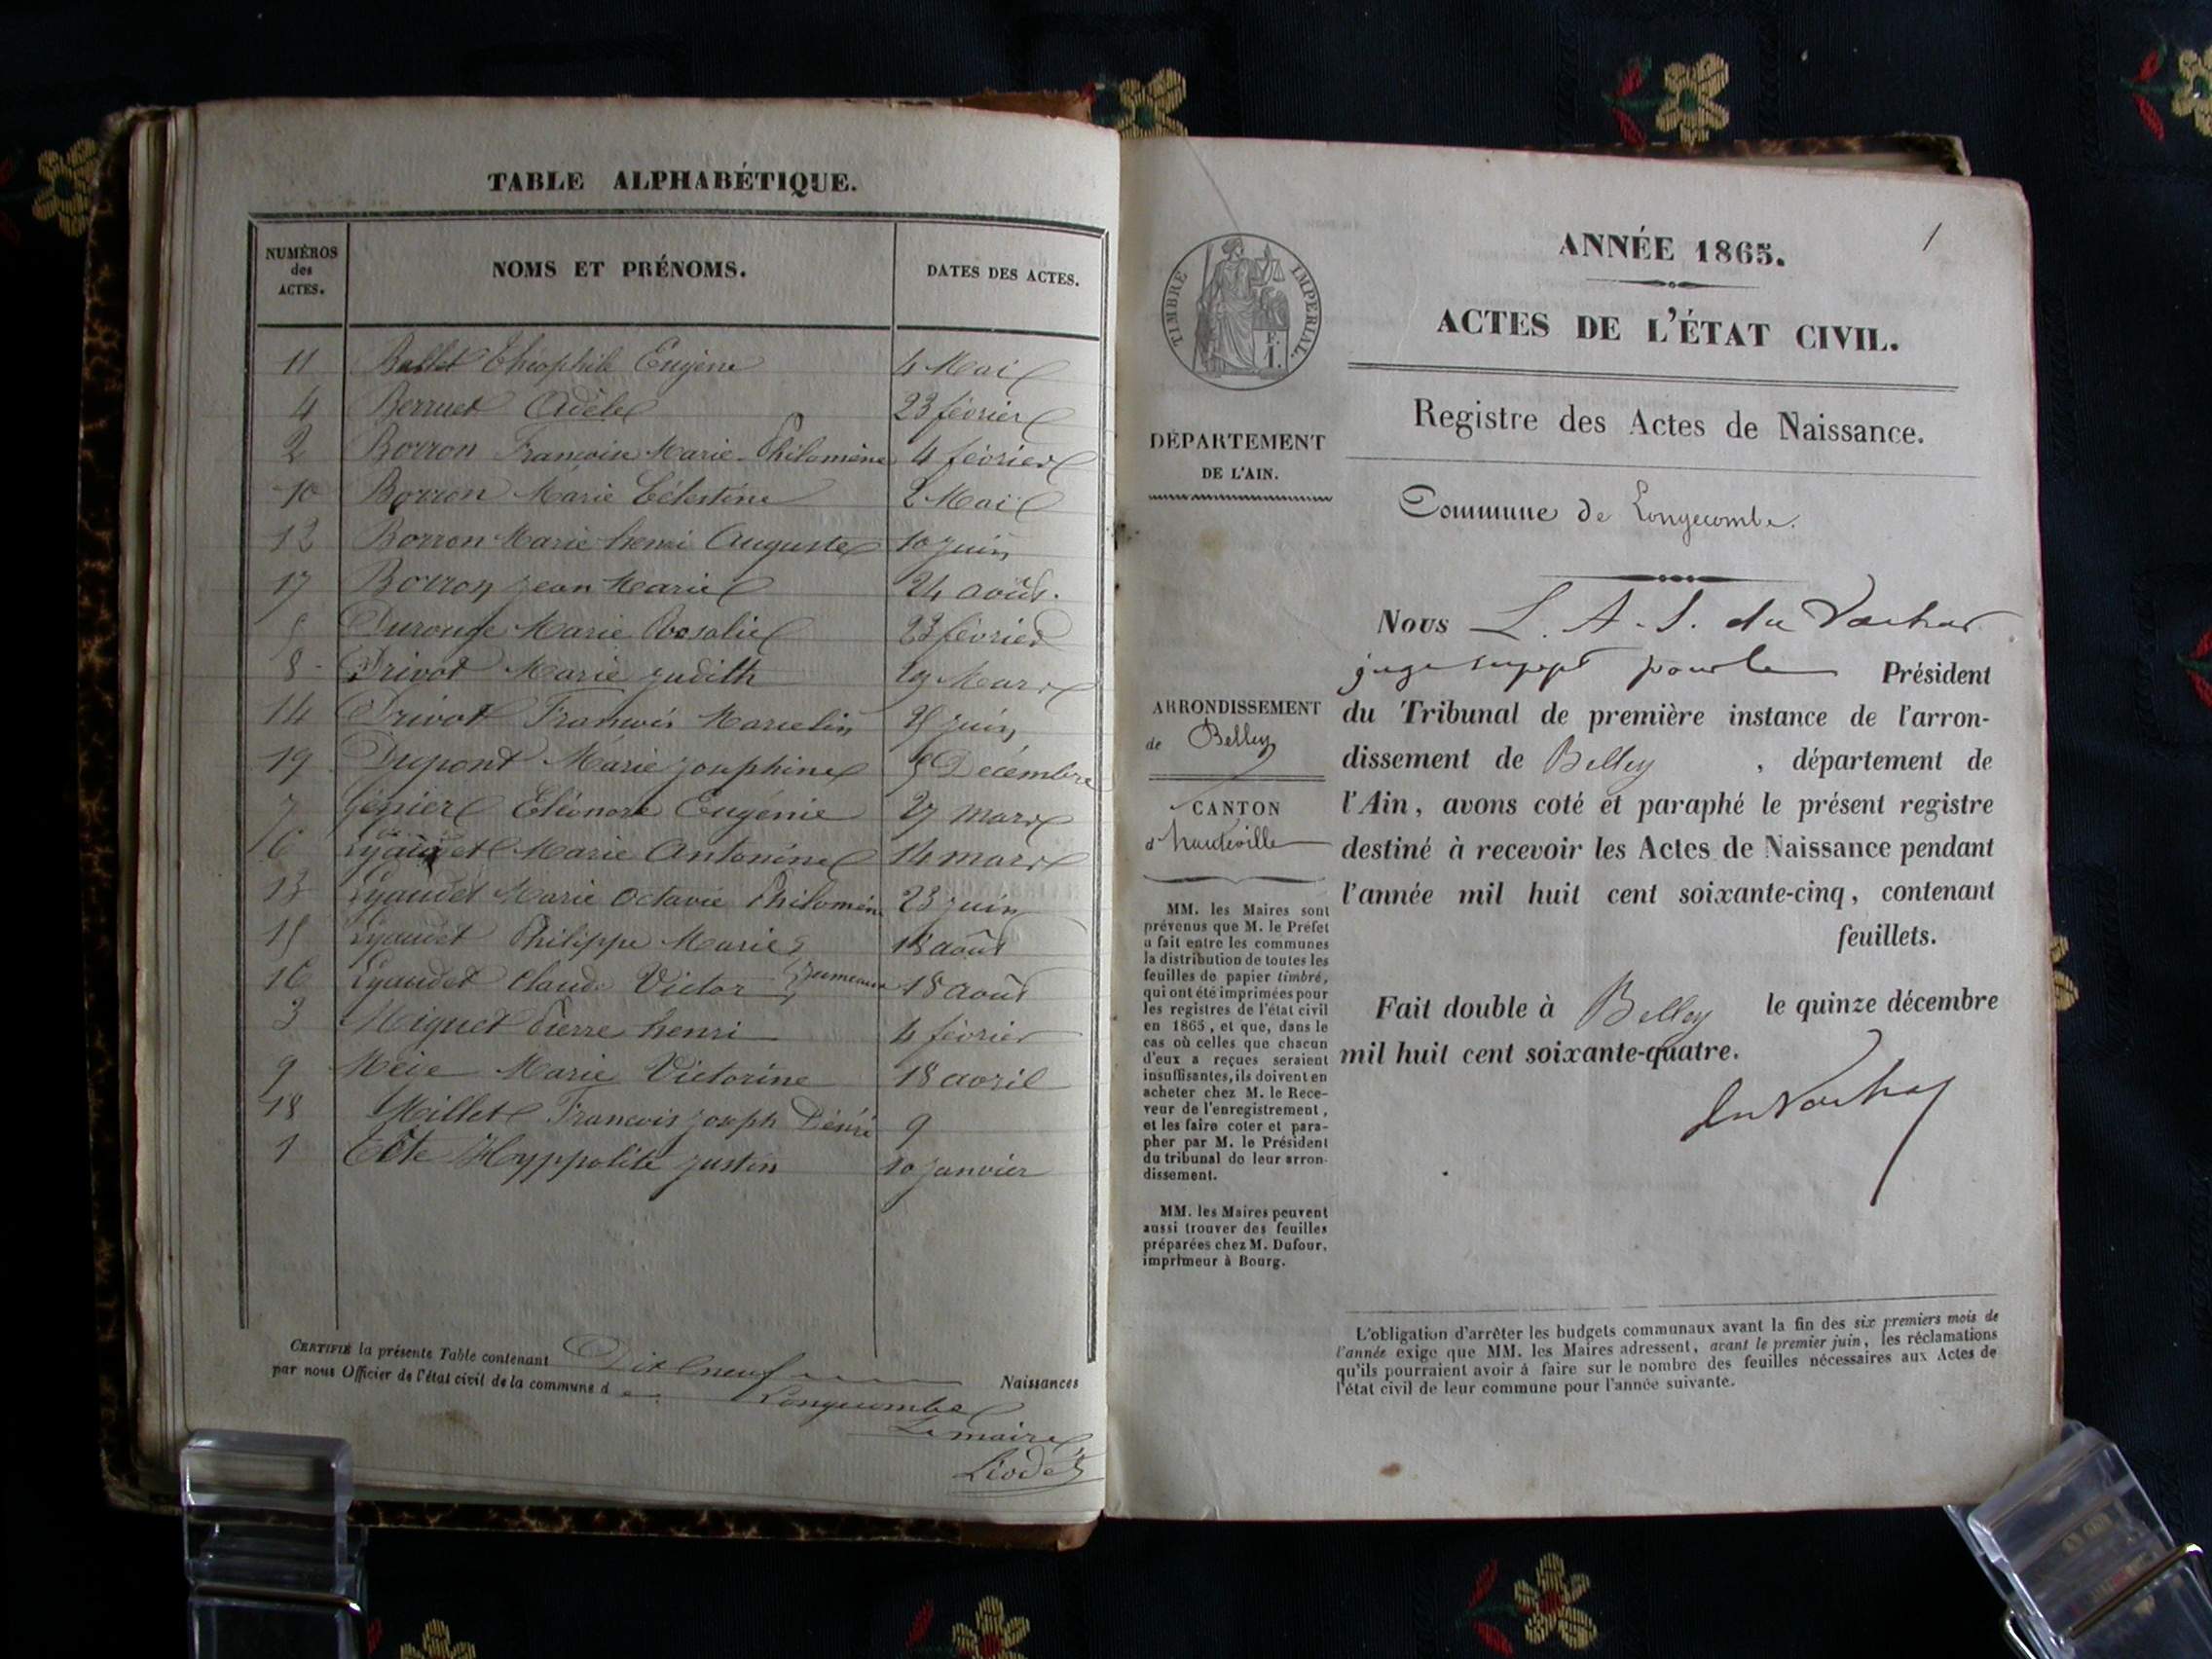 TABLE ALPHABÉTIQUE.
NUMÉROS des ACTES. NOMS ET PRÉNOMS. DATES DES ACTES.
11 Ballet Théophile Eugène 4 Mai
4 Berruet Adèle 23 février
2 Borron Francoise Marie Philomène 4 février
10 Borron Marie Célestine 2 Mai
12 Borron Marie henri Auguste 10 juin
17 Borron jean Marie 24 août.
5 Marie Rosalie 23 février
8 Drivot Marie judith 29 Mars
14 Drivot Francois Marcelin 25 juin
19 Dupont Marie josephine 5 Décembre
7 Génier Eléonore Eugénie 27 mars
6 Lyaudet Marie Antonine 14 mars
13 Lyaudet Marie Octavie Philomène 23 juin
15 Lyaudet Philippe Marie 18 août
16 Lyaudet Claude Victor Jumeaux 18 août
3 Miguet Pierre henri 4 février
9 Marie Victorine 18 avril
18 Millet Francois joseph Désiré 9
1 Tête Hyppolite justin 10 janvier
CERTIFIÉ la présente Table contenant Dix neuf Naissances
par nous Officier de l'état civil de la commune de Longecombe
Le maire
Liodet
1
ANNÉE 1865.
ACTES DE L'ÉTAT CIVIL.
Registre des Actes de Naissance.
Commune de Longecombe.
TIMBRE IMPÉRIAL.
F.
1.
DÉPARTEMENT
DE L'AIN.
ARRONDISSEMENT
de Belley
CANTON
d'hauteville
MM. les Maires sont
prévenus que M. le Préfet
a fait entre les communes
la distribution de toutes les
feuilles de papier timbré,
qui ont été imprimées pour
les registres de l'état civil
en 1865, et que, dans le
cas où celles que chacun
d'eux a reçues seraient
insuffisantes, ils doivent en
acheter chez M. le Rece-
veur de l'enregistrement,
et les faire coter et para-
pher par M. le Président
du tribunal de leur arron-
dissement.
MM. les Maires peuvent
aussi trouver des feuilles
préparées chez M. Dufour,
imprimeur à Bourg.
Nous L. A. S. du Vachat
juge suppt pour le Président
du Tribunal de première instance de l'arron-
dissement de Belley , département de
l'Ain, avons coté et paraphé le présent registre
destiné à recevoir les Actes de Naissance pendant
l'année mil huit cent soixante-cinq, contenant
feuillets.
Fait double à Belley le quinze décembre
mil huit cent soixante-quatre.
du Vachat
L'obligation d'arrêter les budgets communaux avant la fin des six premiers mois de
l'année exige que MM. les Maires adressent, avant le premier juin, les réclamations
qu'ils pourraient avoir à faire sur le nombre des feuilles nécessaires aux Actes de
l'état civil de leur commune pour l'année suivante.